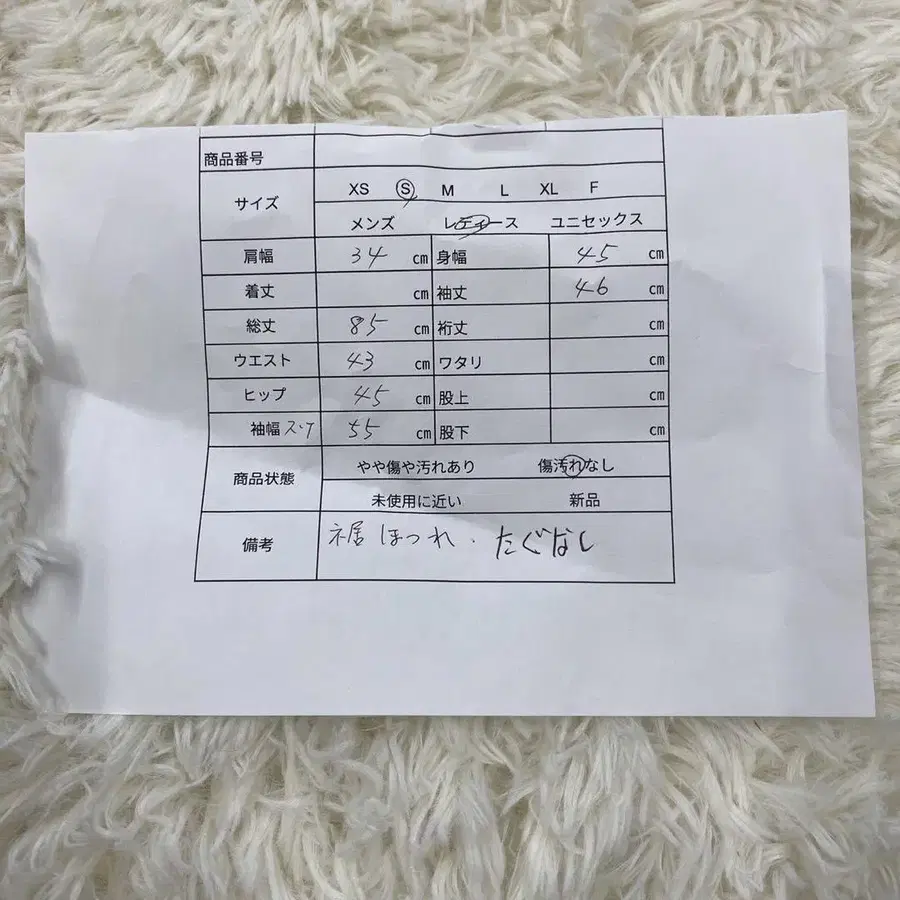 商品番号
サイズ XS S M L XL F
メンズ レディース ユニセックス
肩幅 34 cm 身幅 45 cm
着丈 cm 袖丈 46 cm
総丈 85 cm 裄丈 cm
ウエスト 43 cm ワタリ cm
ヒップ 45 cm 股上 cm
袖幅 スソ 55 cm 股下 cm
商品状態 やや傷や汚れあり 傷汚れなし
未使用に近い 新品
備考 裾ほつれ・たぐなし